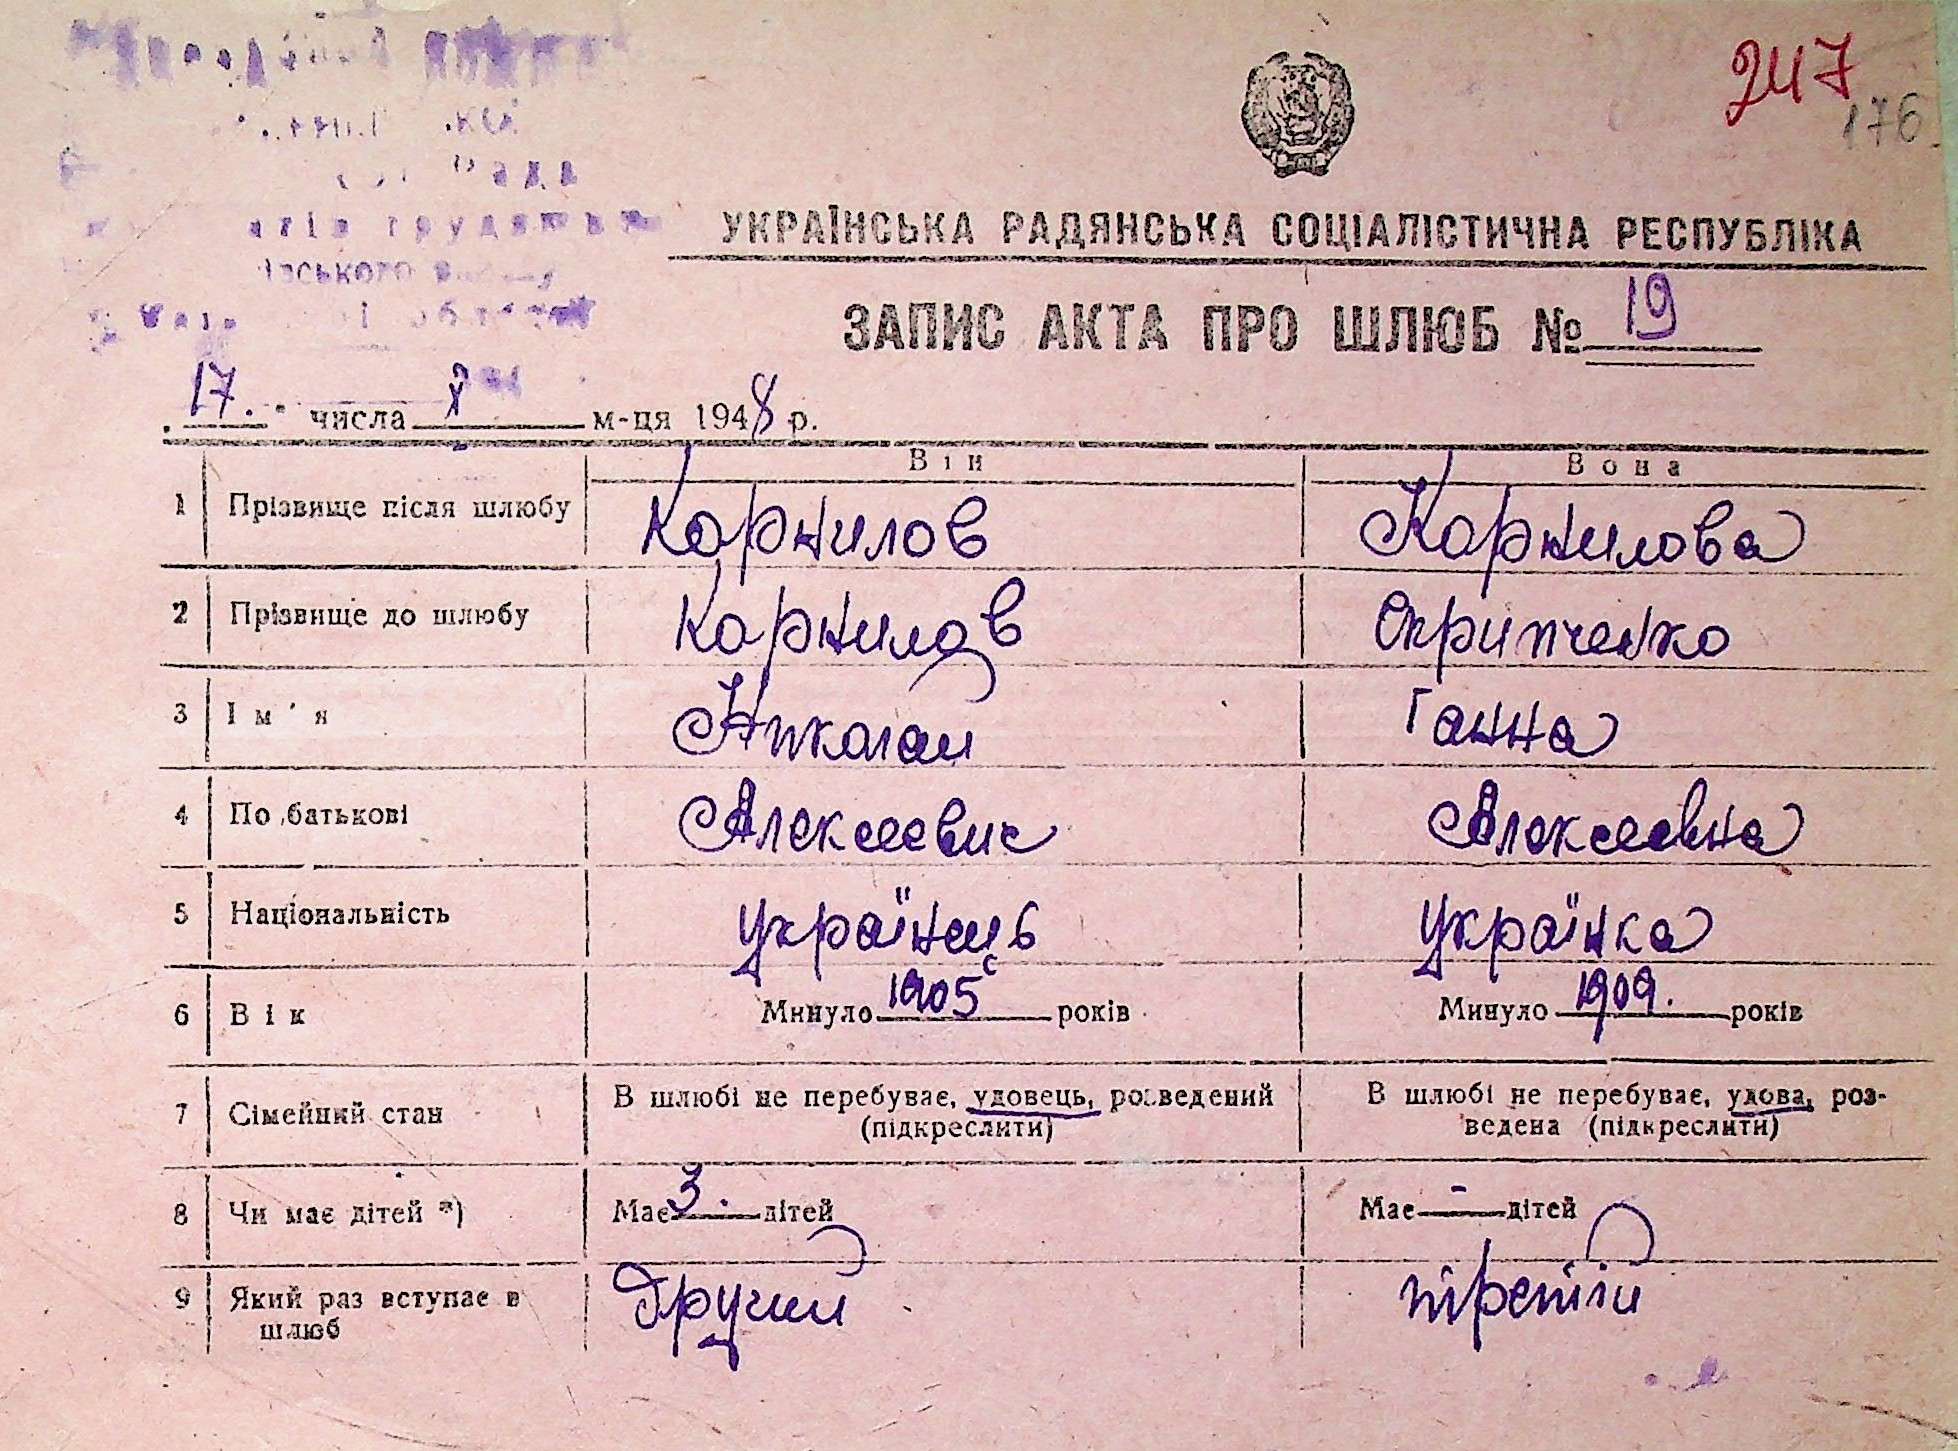 247
176
Рада
трудящих
області
УКРАЇНСЬКА РАДЯНСЬКА СОЦІАЛІСТИЧНА РЕСПУБЛІКА
ЗАПИС АКТА ПРО ШЛЮБ № 19
17. числа X м-ця 1948 р.
Він Вона
1 Прізвище після шлюбу Корнилов Корнилова
2 Прізвище до шлюбу Корнилов Скрипченко
3 Ім'я Николай Ганна
4 По батькові Алексеевич Алексеевна
5 Національність українець українка
6 Вік Минуло 1905 років Минуло 1909. років
7 Сімейний стан В шлюбі не перебуває, удовець, розведений В шлюбі не перебуває, удова, роз-
(підкреслити) ведена (підкреслити)
8 Чи має дітей *) Має 3. дітей Має - дітей
9 Який раз вступає в Другий третій
шлюб